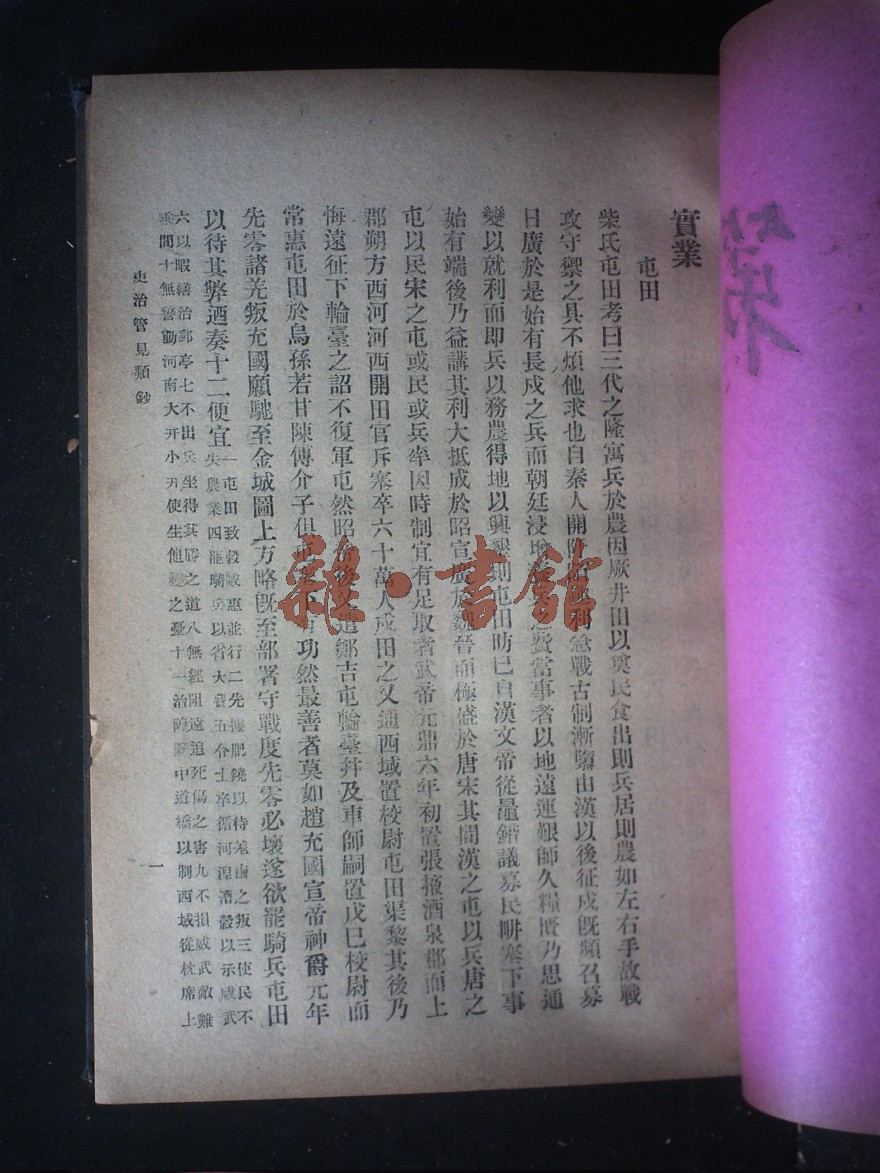 實業
屯田
柴氏屯田考曰三代之隆寓兵於農因厥井田以奠民食出則兵居則農如左右手故戰
攻守禦之具不煩他求也自秦人開阡陌利急戰古制漸隳由漢以後征戍旣頻召募
日廣於是始有長戍之兵而朝廷浸增之費當事者以地遠運艱師久糧匱乃思通
變以就利而即兵以務農得地以興墾則屯田昉已自漢文帝從鼂錯議募民畊塞下事
始有端後乃益講其利大抵成於昭宣廣於魏晉而極盛於唐宋其間漢之屯以兵唐之
屯以民宋之屯或民或兵率因時制宜有足取者武帝元鼎六年初置張掖酒泉郡而上
郡朔方西河河西開田官斥塞卒六十萬人戍田之又通西域置校尉屯田渠黎其後乃
悔遠征下輪臺之詔不復軍屯然昭帝後又遣鄭吉屯輪臺幷及車師嗣置戊巳校尉而
常惠屯田於烏孫若甘陳傅介子俱屯有功然最善者莫如趙充國宣帝神爵元年
先零諸羌叛充國願馳至金城圖上方略旣至部署守戰度先零必壞遂欲罷騎兵屯田
以待其弊迺奏十二便宜
一屯田致穀威惠並行二先據肥饒以待羌虜之叛三使民不
失農業四罷騎兵以省大費五令士卒循河湟漕穀以示威武
六以暇繕治郵亭七不出兵坐得其勝之道八無經阻遠追死傷之害九不損威武敵難
乘間十無警動河南大开小开使生他變之憂十一治隍陿中道橋以制西域從枕席上
吏治管見類鈔
一
雜·書館